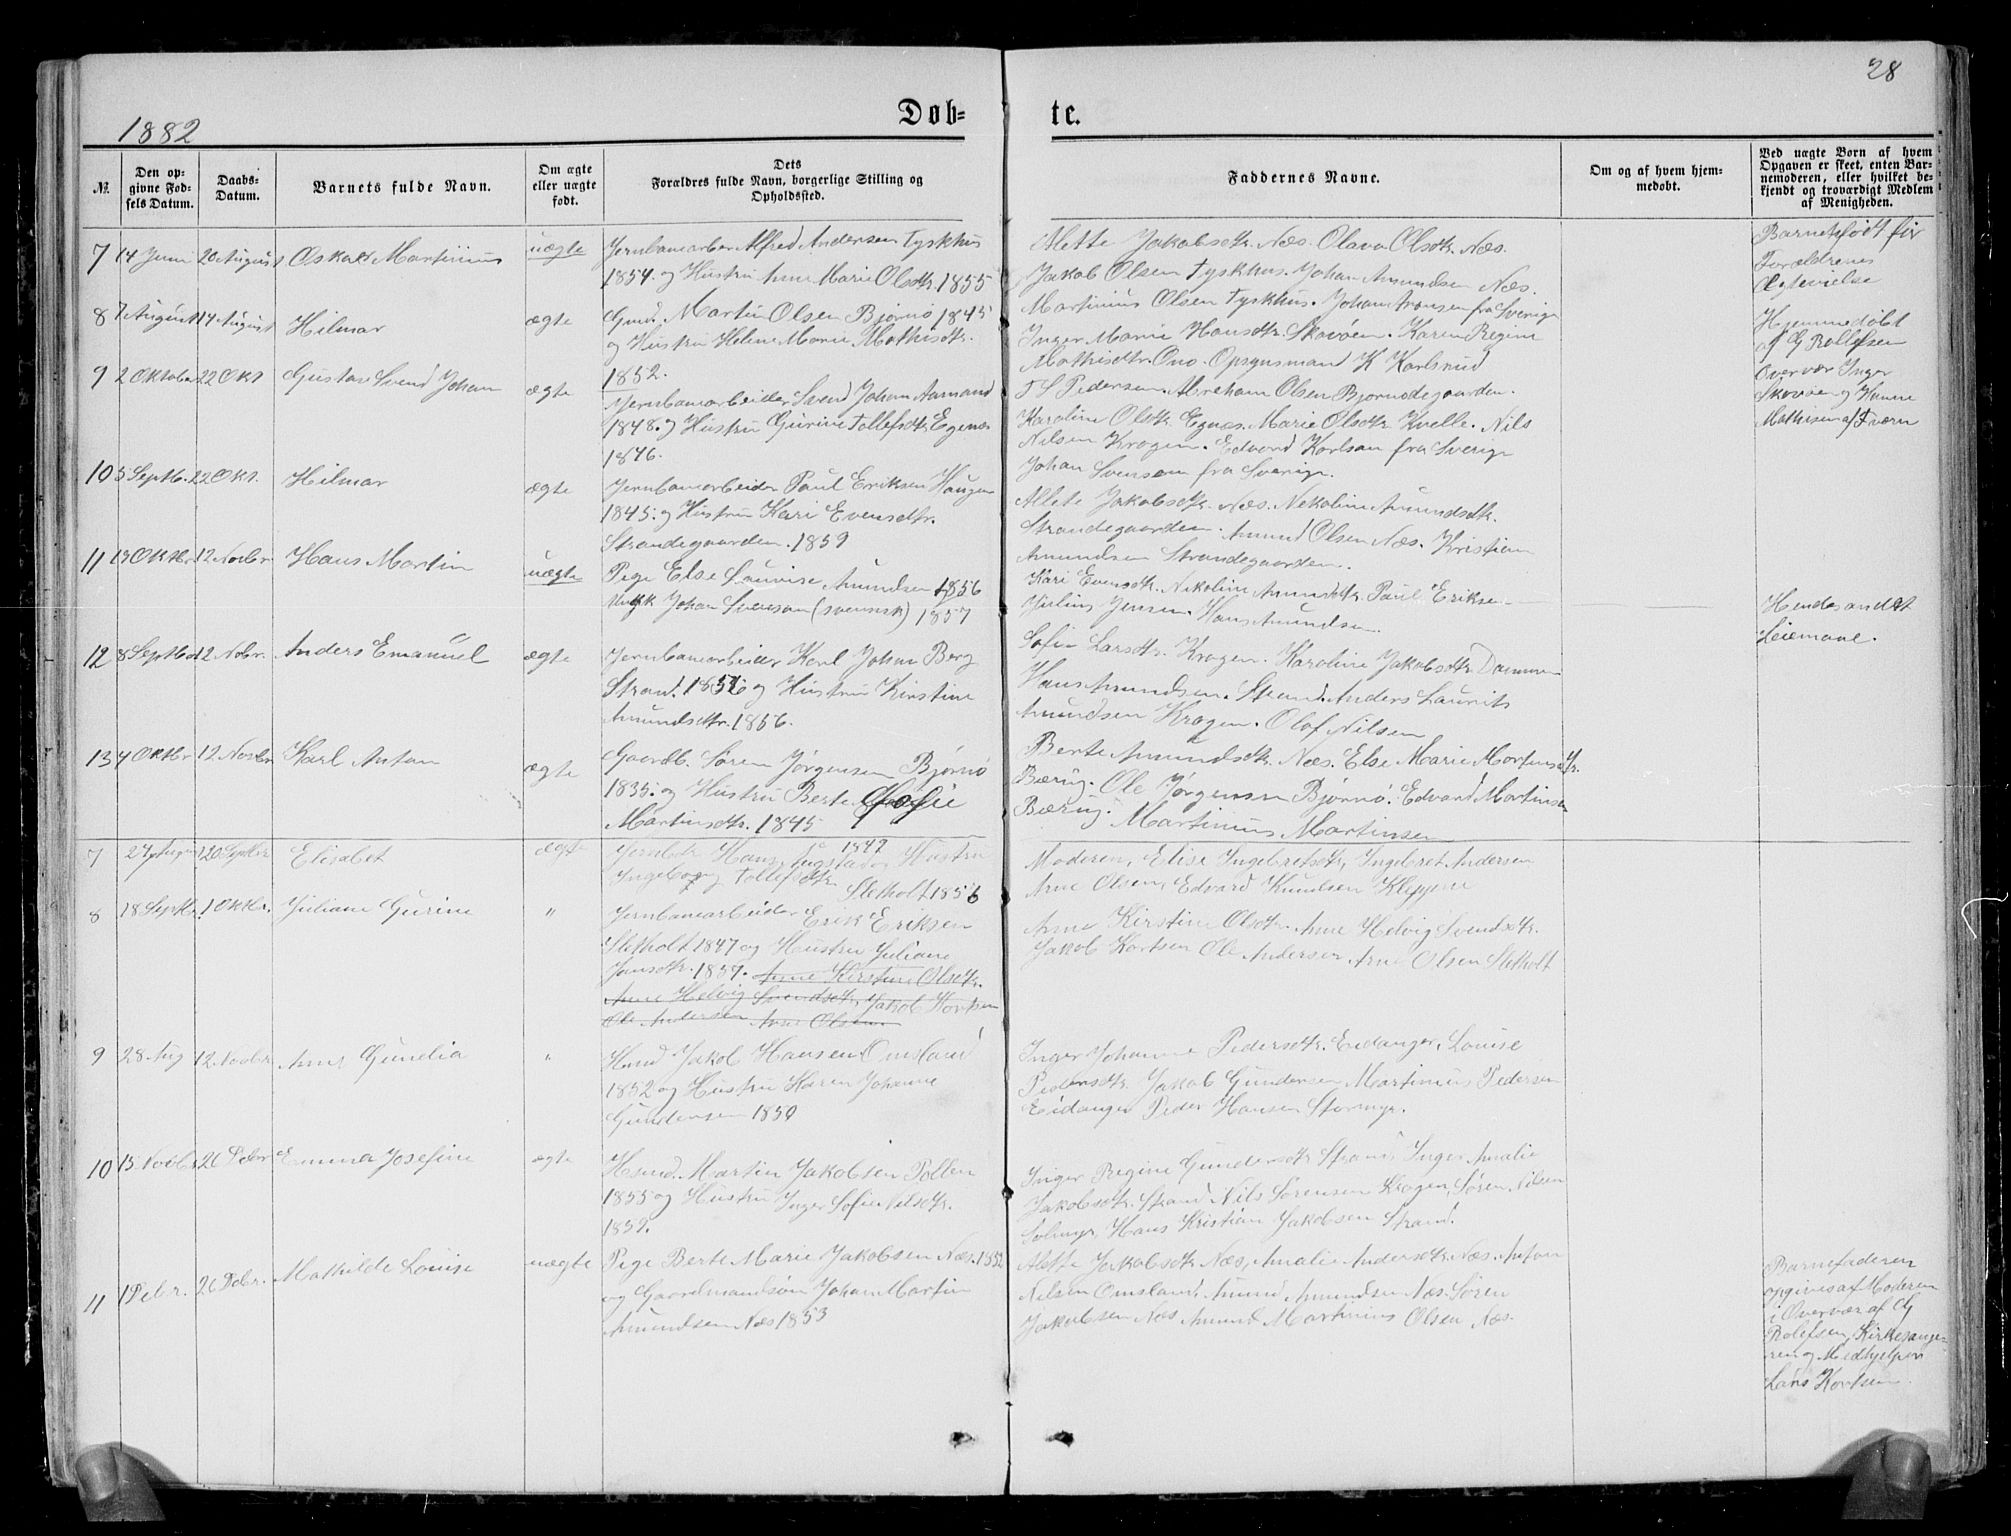 28
1882
Døb-
te.
№.
Den op-
givne Fød-
sels Datum.
Daabs-
Datum.
Barnets fulde Navn.
Om ægte
eller uægte
født.
Dets
Forældres fulde Navn, borgerlige Stilling og
Opholdssted.
Faddernes Navne.
Om og af hvem hjem-
medøbt.
Ved uægte Børn af hvem
Opgaven er skeet, enten Bar-
nemoderen, eller hvilket be-
kjendt og troværdigt Medlem
af Menigheden.
7 14 Juni 20 August Oskar Martinius uægte
Jernbanearber Alfred Andersen Tyskhus
1854. og Hustru Anne Marie Olsdtr. 1855
Alette Jakobsdtr. Næs. Olava Olsdtr. Næs.
Jakob Olsen Tyskhus. Johan Amundsen Næs.
Martinius Olsen Tyskhus. Johan Aronsen fra Sverige
Barnet født før
Forældrenes
Ægtevielse
8 7 August 14 August Hilmar ægte
Gmd. Martin Olsen Bjørnø 1845
og Hustru Helene Marie Mathisdtr.
1852.
Inger Marie Hansdtr. Skavøen. Karen Regine
Mathisdtr. Ono. Opsynsmand K Karlsrud
T S Pedersen. Abreham Olsen Bjørnødegaarden.
Hjemmedøbt
af G Rollefsen
Overvær Inger
Skavøen og Hanne
Mathisen af Tværn
9 2 Oktober 22 Okt. Gustav Svend Johan ægte
Jernbanearbeider Svend Johan Aamand
1848. og Hustru Gurine Tollefsdtr. Egenes
1846.
Karoline Olsdtr. Egnæs. Marie Olsdtr. Kvelle. Nils
Nilsen Krogen. Edvard Karlsen fra Sverige
Johan Svensen fra Sverige.
10 5 Septb. 22 Okt. Hilmar ægte
Jernbanearbeider Paul Eriksen Haugen
1845. og Hustru Kari Evensdtr.
Strandegaarden. 1859
Alete Jakobsdtr. Næs. Nekoline Amundsdtr.
Strandegaarden. Amund Olsen Næs. Kristian
Amundsen Strandegaarden.
11 13 Oktbr 12 Novbr Hans Martin uægte
Pige Else Lauvise Amundsen 1856
Ungk Johan Svenson (svensk) 1857
Kari Evensdtr. Nikoline Amundsdtr. Paul Eriksen
Julius Jensen. Hans Amundsen
Hendes andet
Leiemaal.
12 8 Septbr 12 Nobr. Anders Emanuel ægte
Jernbanearbeider Karl Johan Berg
Strand. 1856 og Hustru Kirstine
Amundsdtr. 1856.
Sofie Larsdtr. Krogen. Karoline Jakobsdtr. Dammen
Hans Amundsen. Strand. Anders Laurits
Amundsen Krogen. Olaf Nilsen
13 4 Oktbr 12 Novbr Karl Anton ægte
Gaardb. Søren Jørgensen Bjørnø
1835. og Hustru Berte Sofie
Martinsdtr. 1845
Berte Amundsdtr. Næs. Else Marie Martinsdtr.
Bærug. Ole Jørgensen Bjørnø. Edvard Martinsen
Bærug. Martinius Martinsen
7 27 August 20 Septbr Elisabet ægte
Jernbtr. Hans Fugstad 1849 og Hustru
Ingeborg Tollefsdtr.
Sletholt 1856
Moderen, Elise Ingebretsdtr, Ingebret Andersen
Arne Olsen, Edvard Knudsen Kleppene
8 18 Septbr. 1 Oktbr. Juliane Gurine "
Jernbanearbeider Erik Eriksen
Sletholt 1847 og Hustru Juliane
Jansdtr. 1857. Anne Kirstine Olsdtr.
Anne Helvig Svendsdtr, Jakob Kortsen
Ole Andersen Arne Olsen
Anne Kirstine Olsdtr. Anne Helvig Svendsdtr.
Jakob Kortsen Ole Andersen Arne Olsen Sletholt
9 28 Aug 12 Novbr. Anne Gunelia "
Hsmd Jakob Hansen Omsland
1852 og Hustru Karen Johanne
Gundersen 1850
Inger Johanne Pedersdtr. Eidanger, Louise
Pedersdtr. Jakob Gundersen Martinius Pedersen
Eidanger Peder Hansen Stormyr.
10 15 Novbr 26 Debr Emma Josefine ægte
Hsmd. Martin Jakobsen Pollen
1855 og Hustru Inger Sofie Nilsdtr.
1859.
Inger Regine Gundersdtr Strand, Inger Amalie
Jakobsdtr. Strand Nils Sørensen Krogen, Søren Nilsen
Solmyr, Hans Kristian Jakobsen Strand.
11 1 Debr. 26 Debr. Mathilde Louise uægte
Pige Berte Marie Jakobsen Næs. 1852
og Gaardmandsøn Johan Martin
Amundsen Næs 1853
Alette Jakobsdtr Næs, Amalie Andersdtr. Næs. Anton
Nilsen Omsland. Amund Amundsen Næs. Søren
Jakobsen Næs Amund Martinius Olsen Næs.
Barnefaderen
opgives af Moderen
i Overvær af G
Rolefsen, Kirkesange-
ren og Medhjelper
Lars Kortsen.